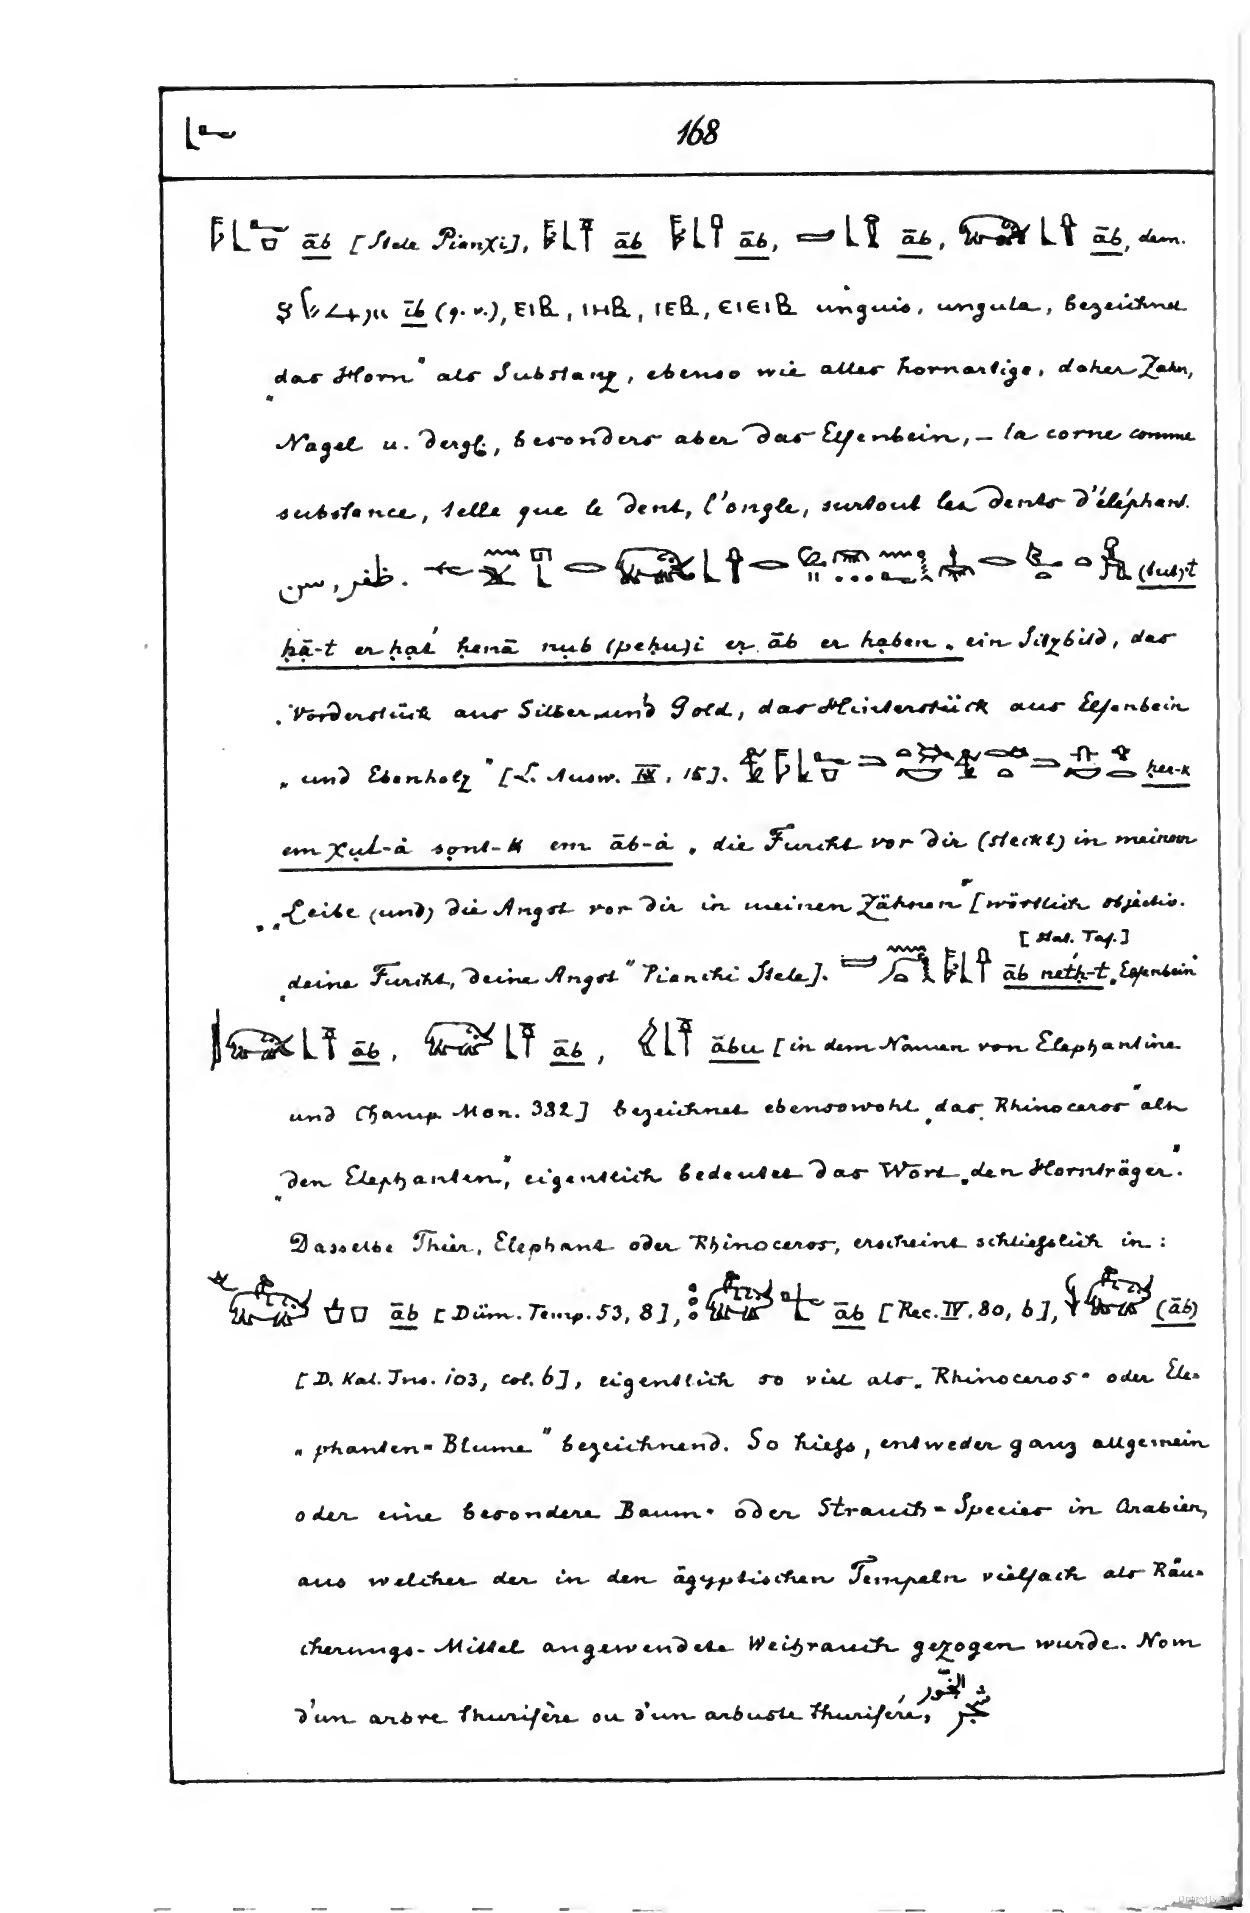 168
āb [Stele Pianχi], āb āb, āb, āb, dem.
īb (q. v.), ⲈⲒⲂ, ⲒⲎⲂ, ⲒⲈⲂ, ⲈⲒⲈⲒⲂ unguis, ungula, bezeichnet
„das Horn" als Substanz, ebenso wie alles hornartige, daher Zahn,
Nagel u. dergl., besonders aber das Elfenbein, – la corne comme
substance, telle que le dent, l'ongle, surtout les dents d'éléphant.
ظفر, سن . (tut)-t
ḥā-t er ḥat' ḥenā nub (peḥu)i er āb er haben „ein Sitzbild, das
„Vorderstück aus Silber und Gold, das Hinterstück aus Elfenbein
„und Ebenholz" [L. Ausw. IX, 15]. ḥer-k
em χut-à sont-k em āb-à „die Furcht vor dir (steckt) in meinem
„Leibe (und) die Angst vor dir in meinen Zähnen" [wörtlich objectiv.
„deine Furcht, deine Angst" Pianchi Stele]. āb neth-t „Elfenbein"
[Stat. Taf.]
āb, āb, ābu [in dem Namen von Elephantine
und Champ. Mon. 332] bezeichnet ebensowohl „das Rhinoceros" als
„den Elephanten", eigentlich bedeutet das Wort „den Hornträger".
Dasselbe Thier, Elephant oder Rhinoceros, erscheint schliefslich in:
āb [Düm. Temp. 53, 8], āb [Rec. IV. 80, 6], (āb)
[D. Kal. Ins. 103, col. 6], eigentlich so viel als „Rhinoceros- oder Ele-
„phanten-Blume" bezeichnend. So hiefs, entweder ganz allgemein
oder eine besondere Baum- oder Strauch-Species in Arabien,
aus welcher der in den ägyptischen Tempeln vielfach als Räu-
cherungs-Mittel angewendete Weihrauch gezogen wurde. Nom
d'un arbre thurifère ou d'un arbuste thurifére, شجر